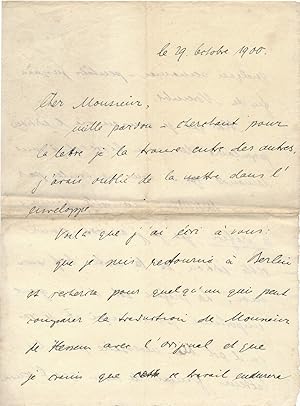 le 29. Octobre 1900.
Cher Monsieur,
mille pardon – cherchant pour
la lettre je la trouve entre des autres,
j'avais oublié de la mettre dans l'
enveloppe.
Voilà que j'ai écri à vous:
que je suis retourné à Berlin
et cherche pour quelqu'un qui peut
comparer la traduction de Monsieur
de Hessem avec l'original et que
je crains que ce travail endurera